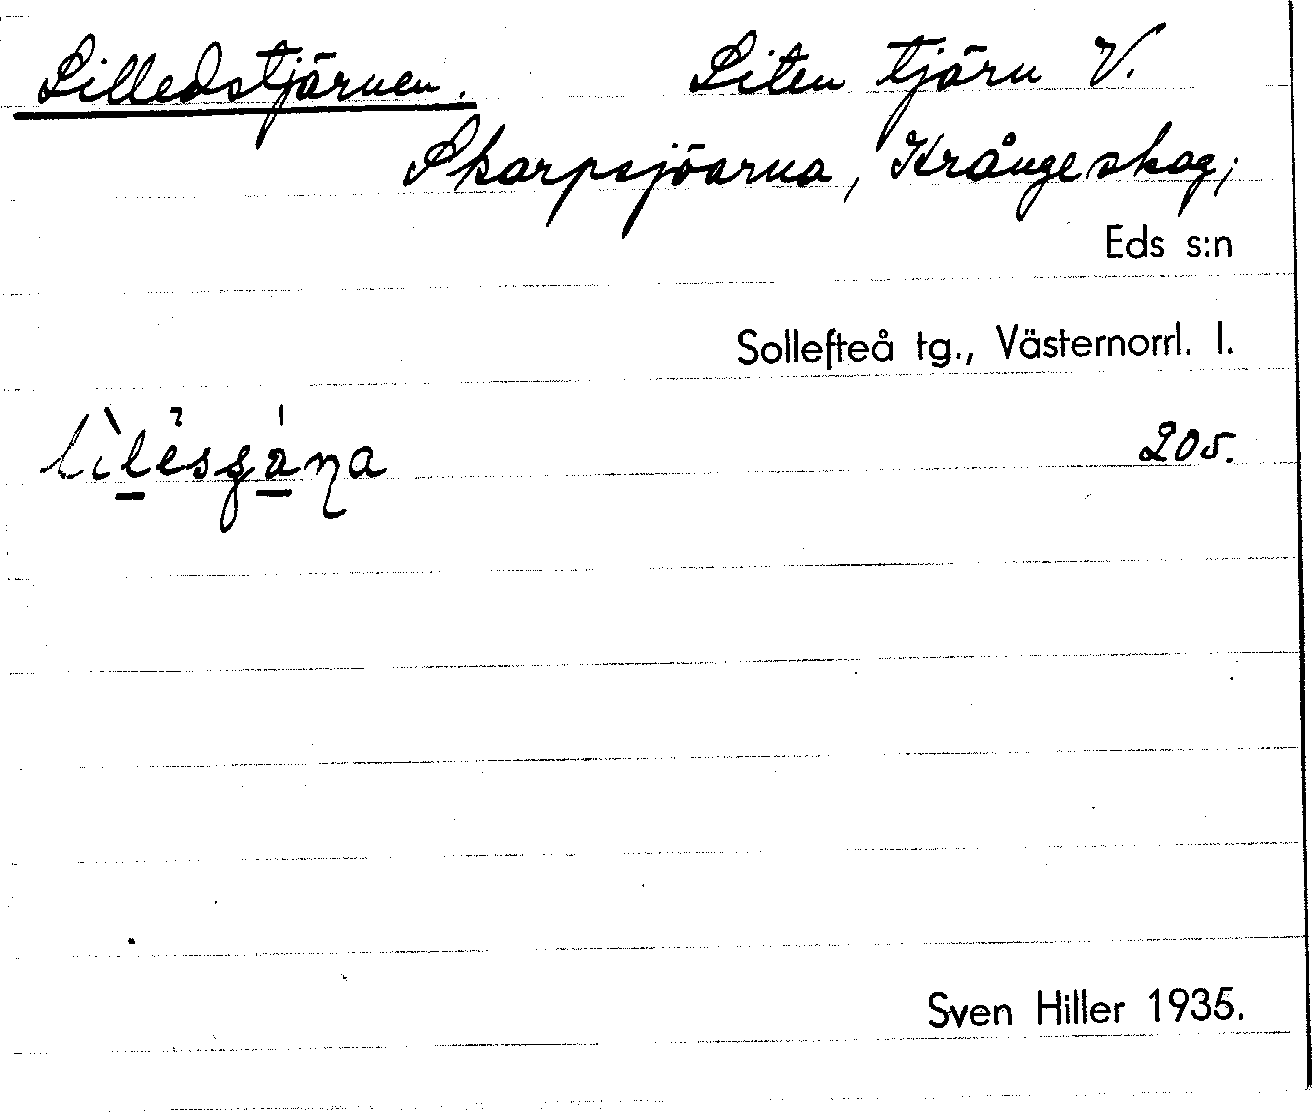 Lilledstjärnen. Liten tjärn V.
Skarpsjöarna, Krångeskog;
Eds s:n
Sollefteå tg., Västernorrl. l.
205.
Sven Hiller 1935.